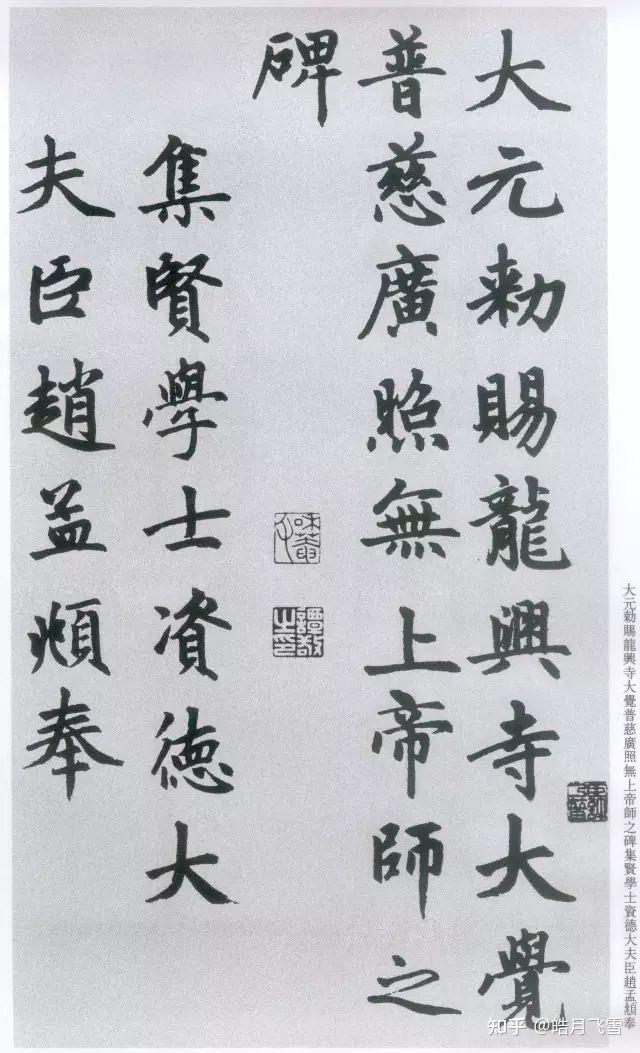 大元勅賜龍興寺大覺
普慈廣照無上帝師之
碑
譚敬之印
集賢學士資德大
夫臣趙孟頫奉
大元勅賜龍興寺大覺普慈廣照無上帝師之碑集賢學士資德大夫臣趙孟頫奉
知乎 @皓月飞雪